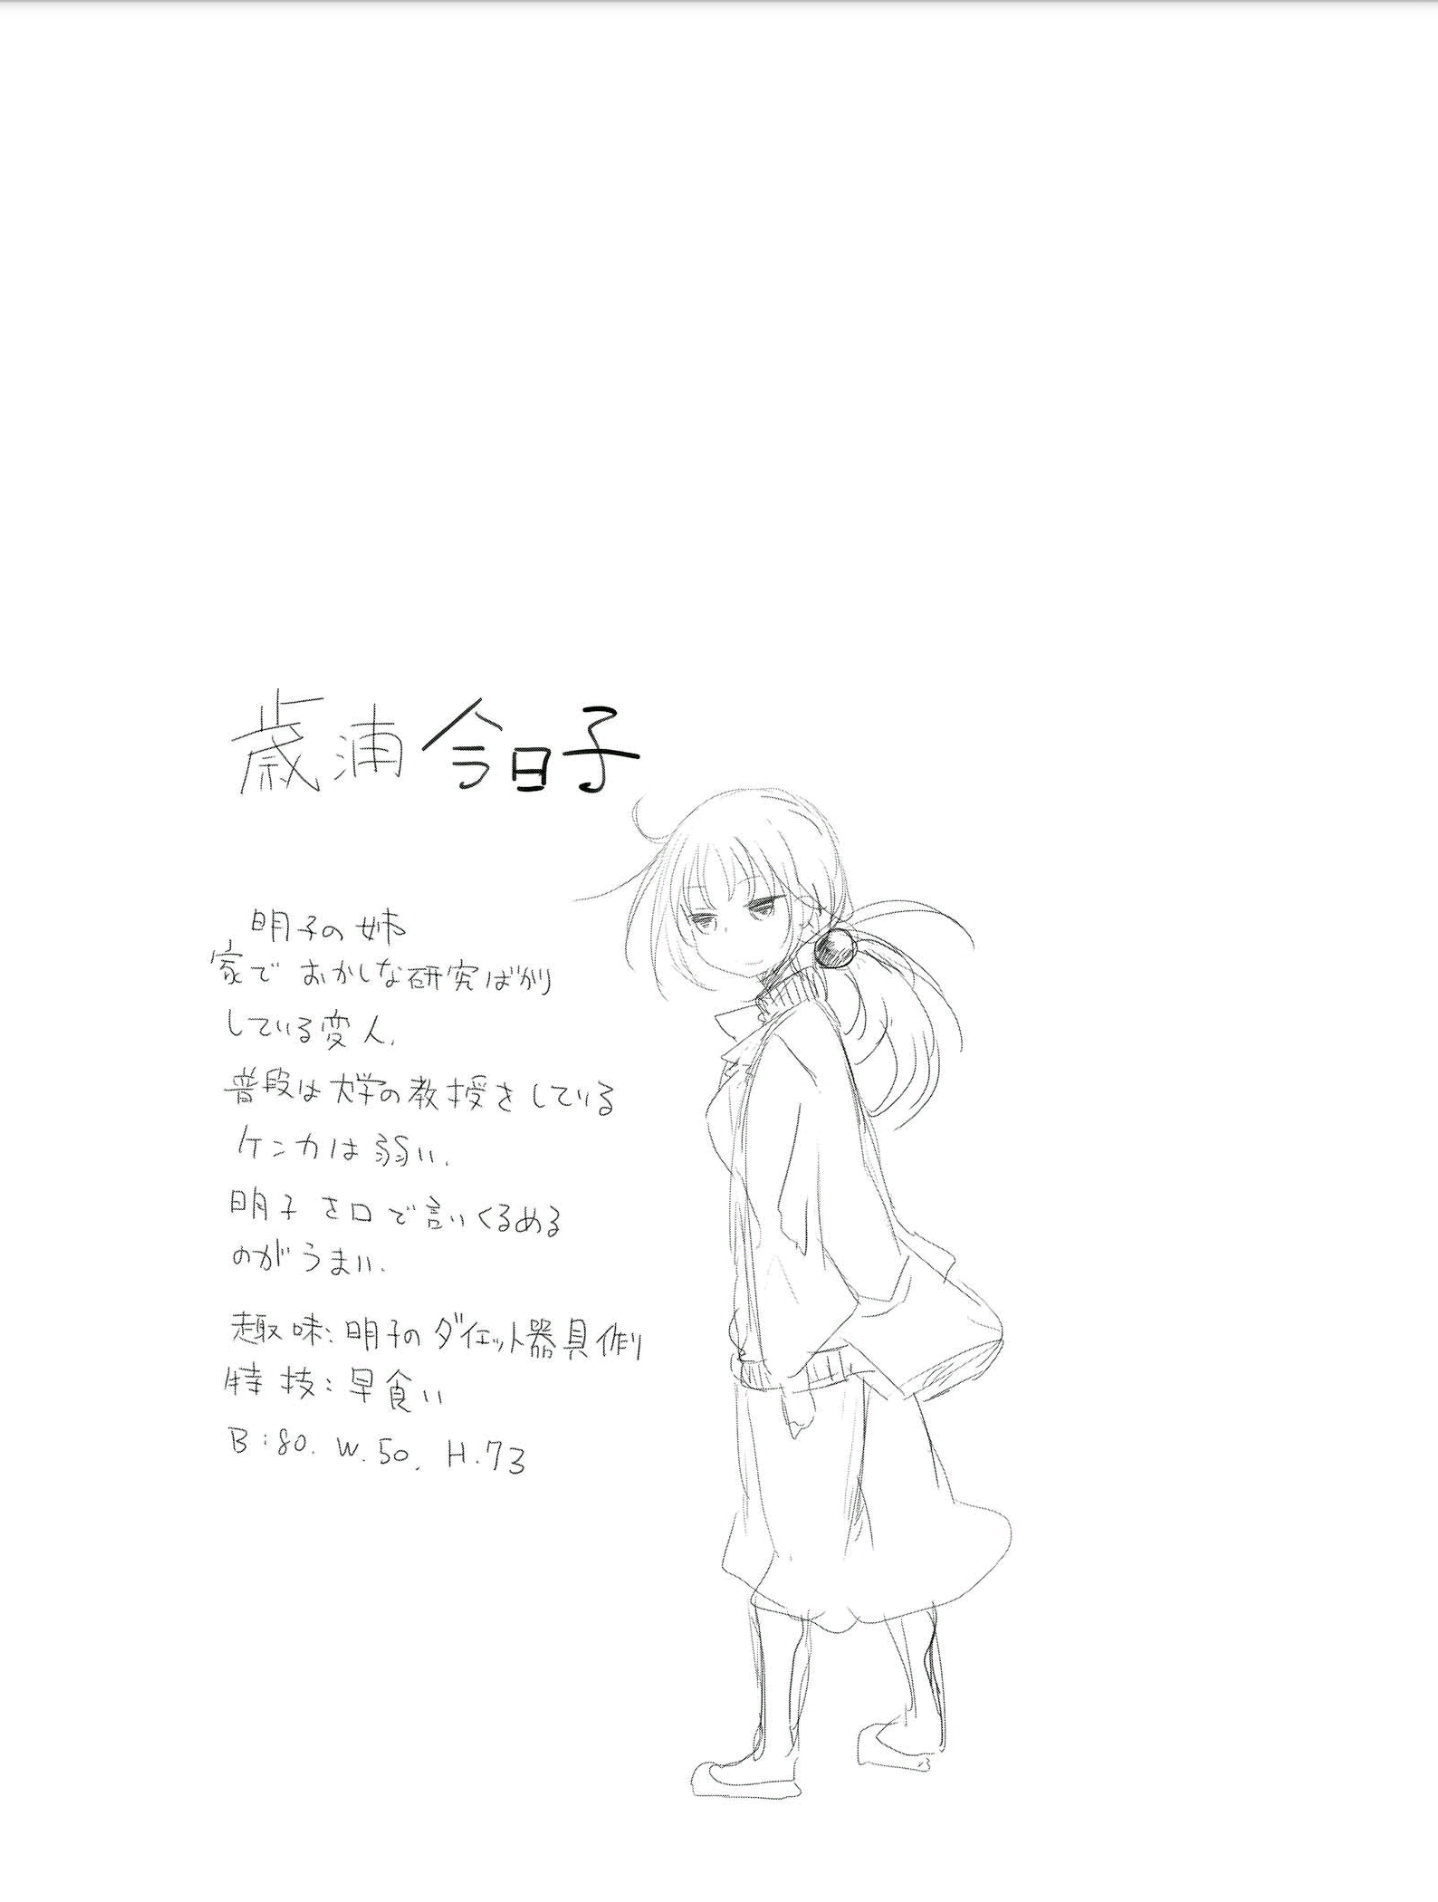 歳浦今日子
明子の姉
家でおかしな研究ばかり
している変人.
普段は大学の教授をしている
ケンカは弱い.
明子を口で言いくるめる
のがうまい.
趣味:明子のダイエット器具作り
特技:早食い
B:80. W.50. H.73